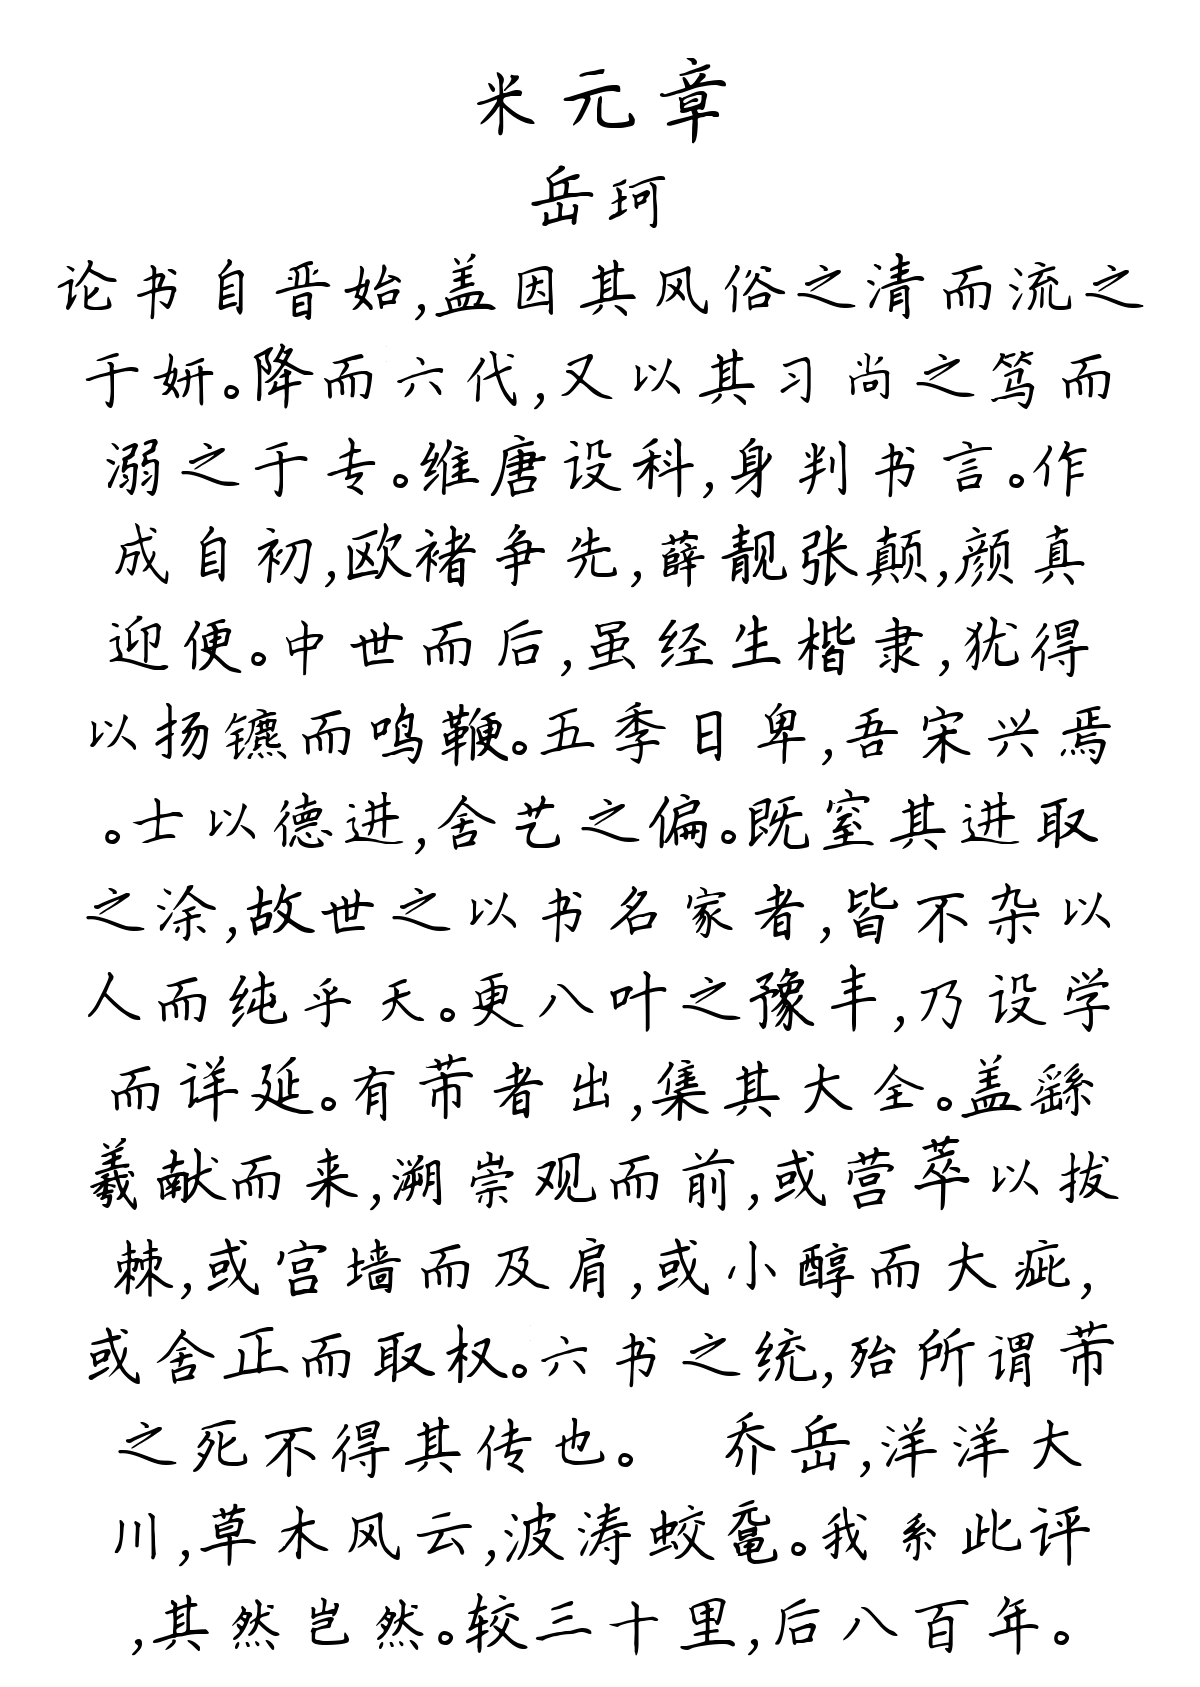 米元章
岳珂
论书自晋始,盖因其风俗之清而流之
于妍。降而六代,又以其习尚之笃而
溺之于专。维唐设科,身判书言。作
成自初,欧褚争先,薛靓张颠,颜真
迎便。中世而后,虽经生楷隶,犹得
以扬镳而鸣鞭。五季日卑,吾宋兴焉
。士以德进,舍艺之偏。既窒其进取
之涂,故世之以书名家者,皆不杂以
人而纯乎天。更八叶之豫丰,乃设学
而详延。有芾者出,集其大全。盖繇
羲献而来,溯崇观而前,或营萃以拔
棘,或宫墙而及肩,或小醇而大疵,
或舍正而取权。六书之统,殆所谓芾
之死不得其传也。 乔岳,洋洋大
川,草木风云,波涛蛟鼋。我系此评
,其然岂然。较三十里,后八百年。